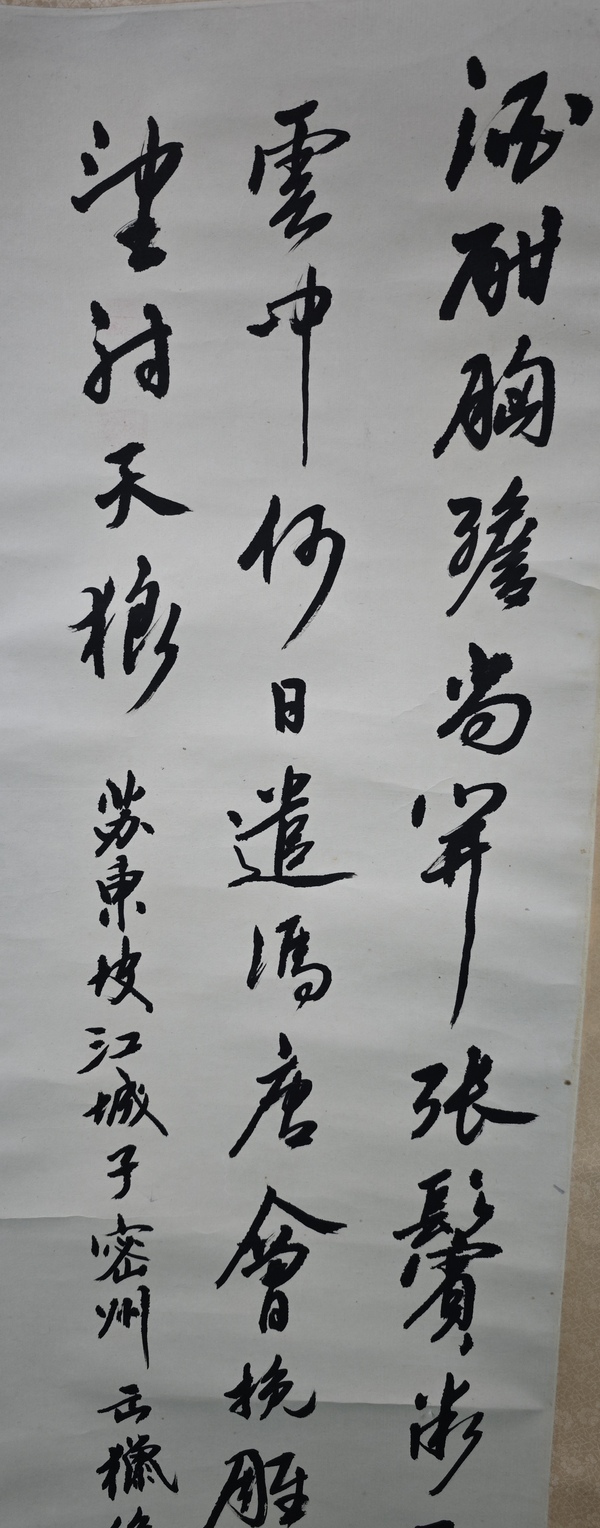 酒酣胸膽尚開張鬢微
雲中何日遣馮唐會挽雕
望射天狼 苏東坡江城子密州出獵